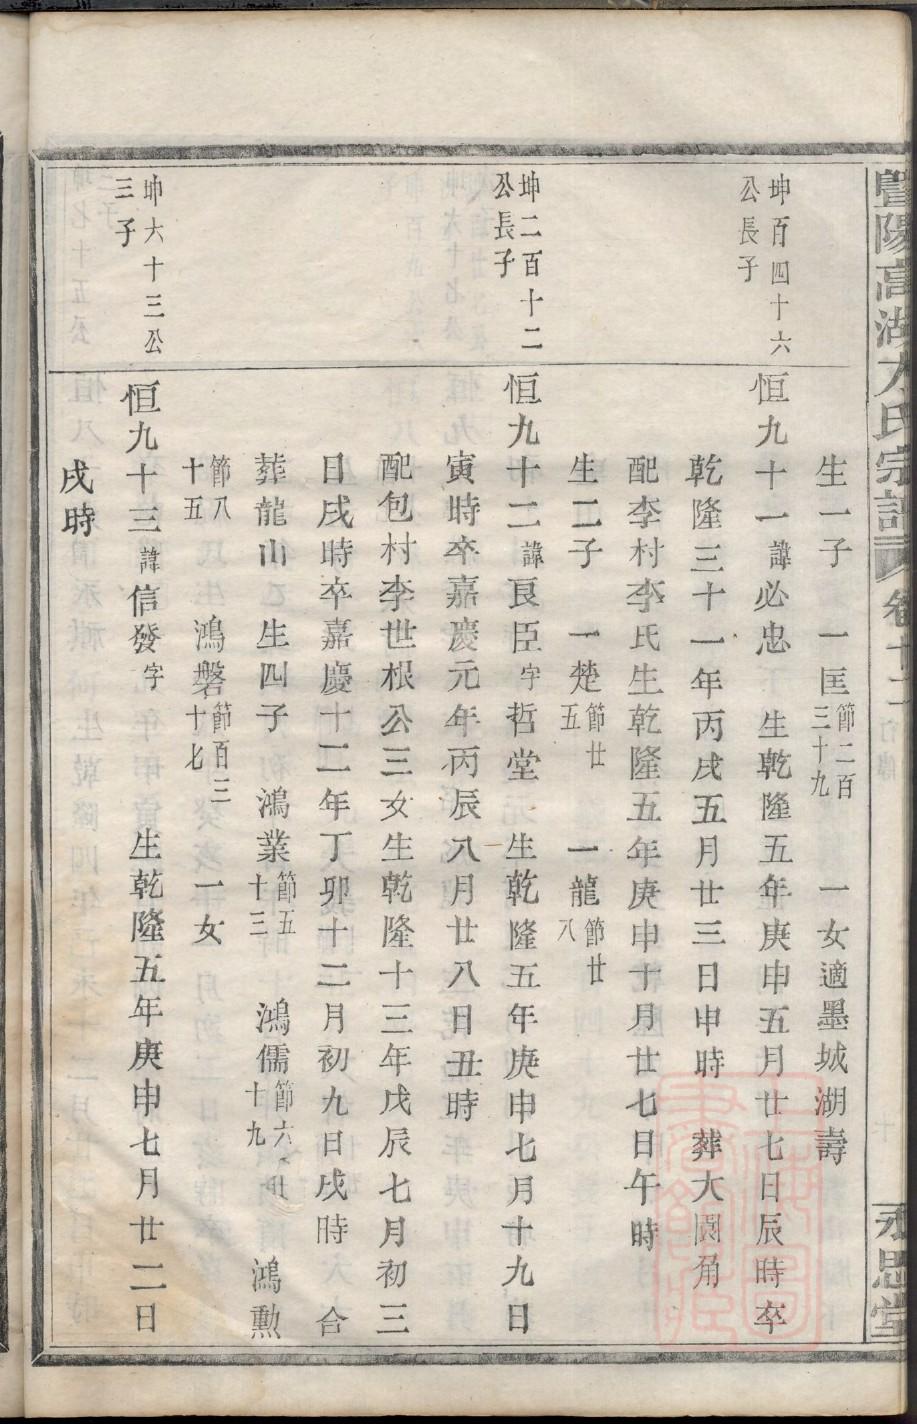 暨陽高湖方氏宗譜 卷十二 行傳 永思堂
生一子 一匡節二百三十九 一女適墨城湖壽
坤百四十六公長子
恒九十一諱必忠 生乾隆五年庚申五月廿七日辰時卒
乾隆三十一年丙戌五月廿三日申時 葬大園角
配李村李氏生乾隆五年庚申十月廿七日午時
生二子 一楚節廿五 一龍節廿八
坤二百十二公長子
恒九十二諱良臣字哲堂 生乾隆五年庚申七月十九日
寅時卒嘉慶元年丙辰八月廿八日丑時
配包村李世根公三女生乾隆十三年戊辰七月初三
日戌時卒嘉慶十二年丁卯十二月初九日戌時 合
葬龍山 生四子 鴻業節五十三 鴻儒節六十九 鴻勲
節八十五 鴻磐節百三十七 一女
坤六十三公三子
恒九十三諱信發字 生乾隆五年庚申七月廿二日
戌時